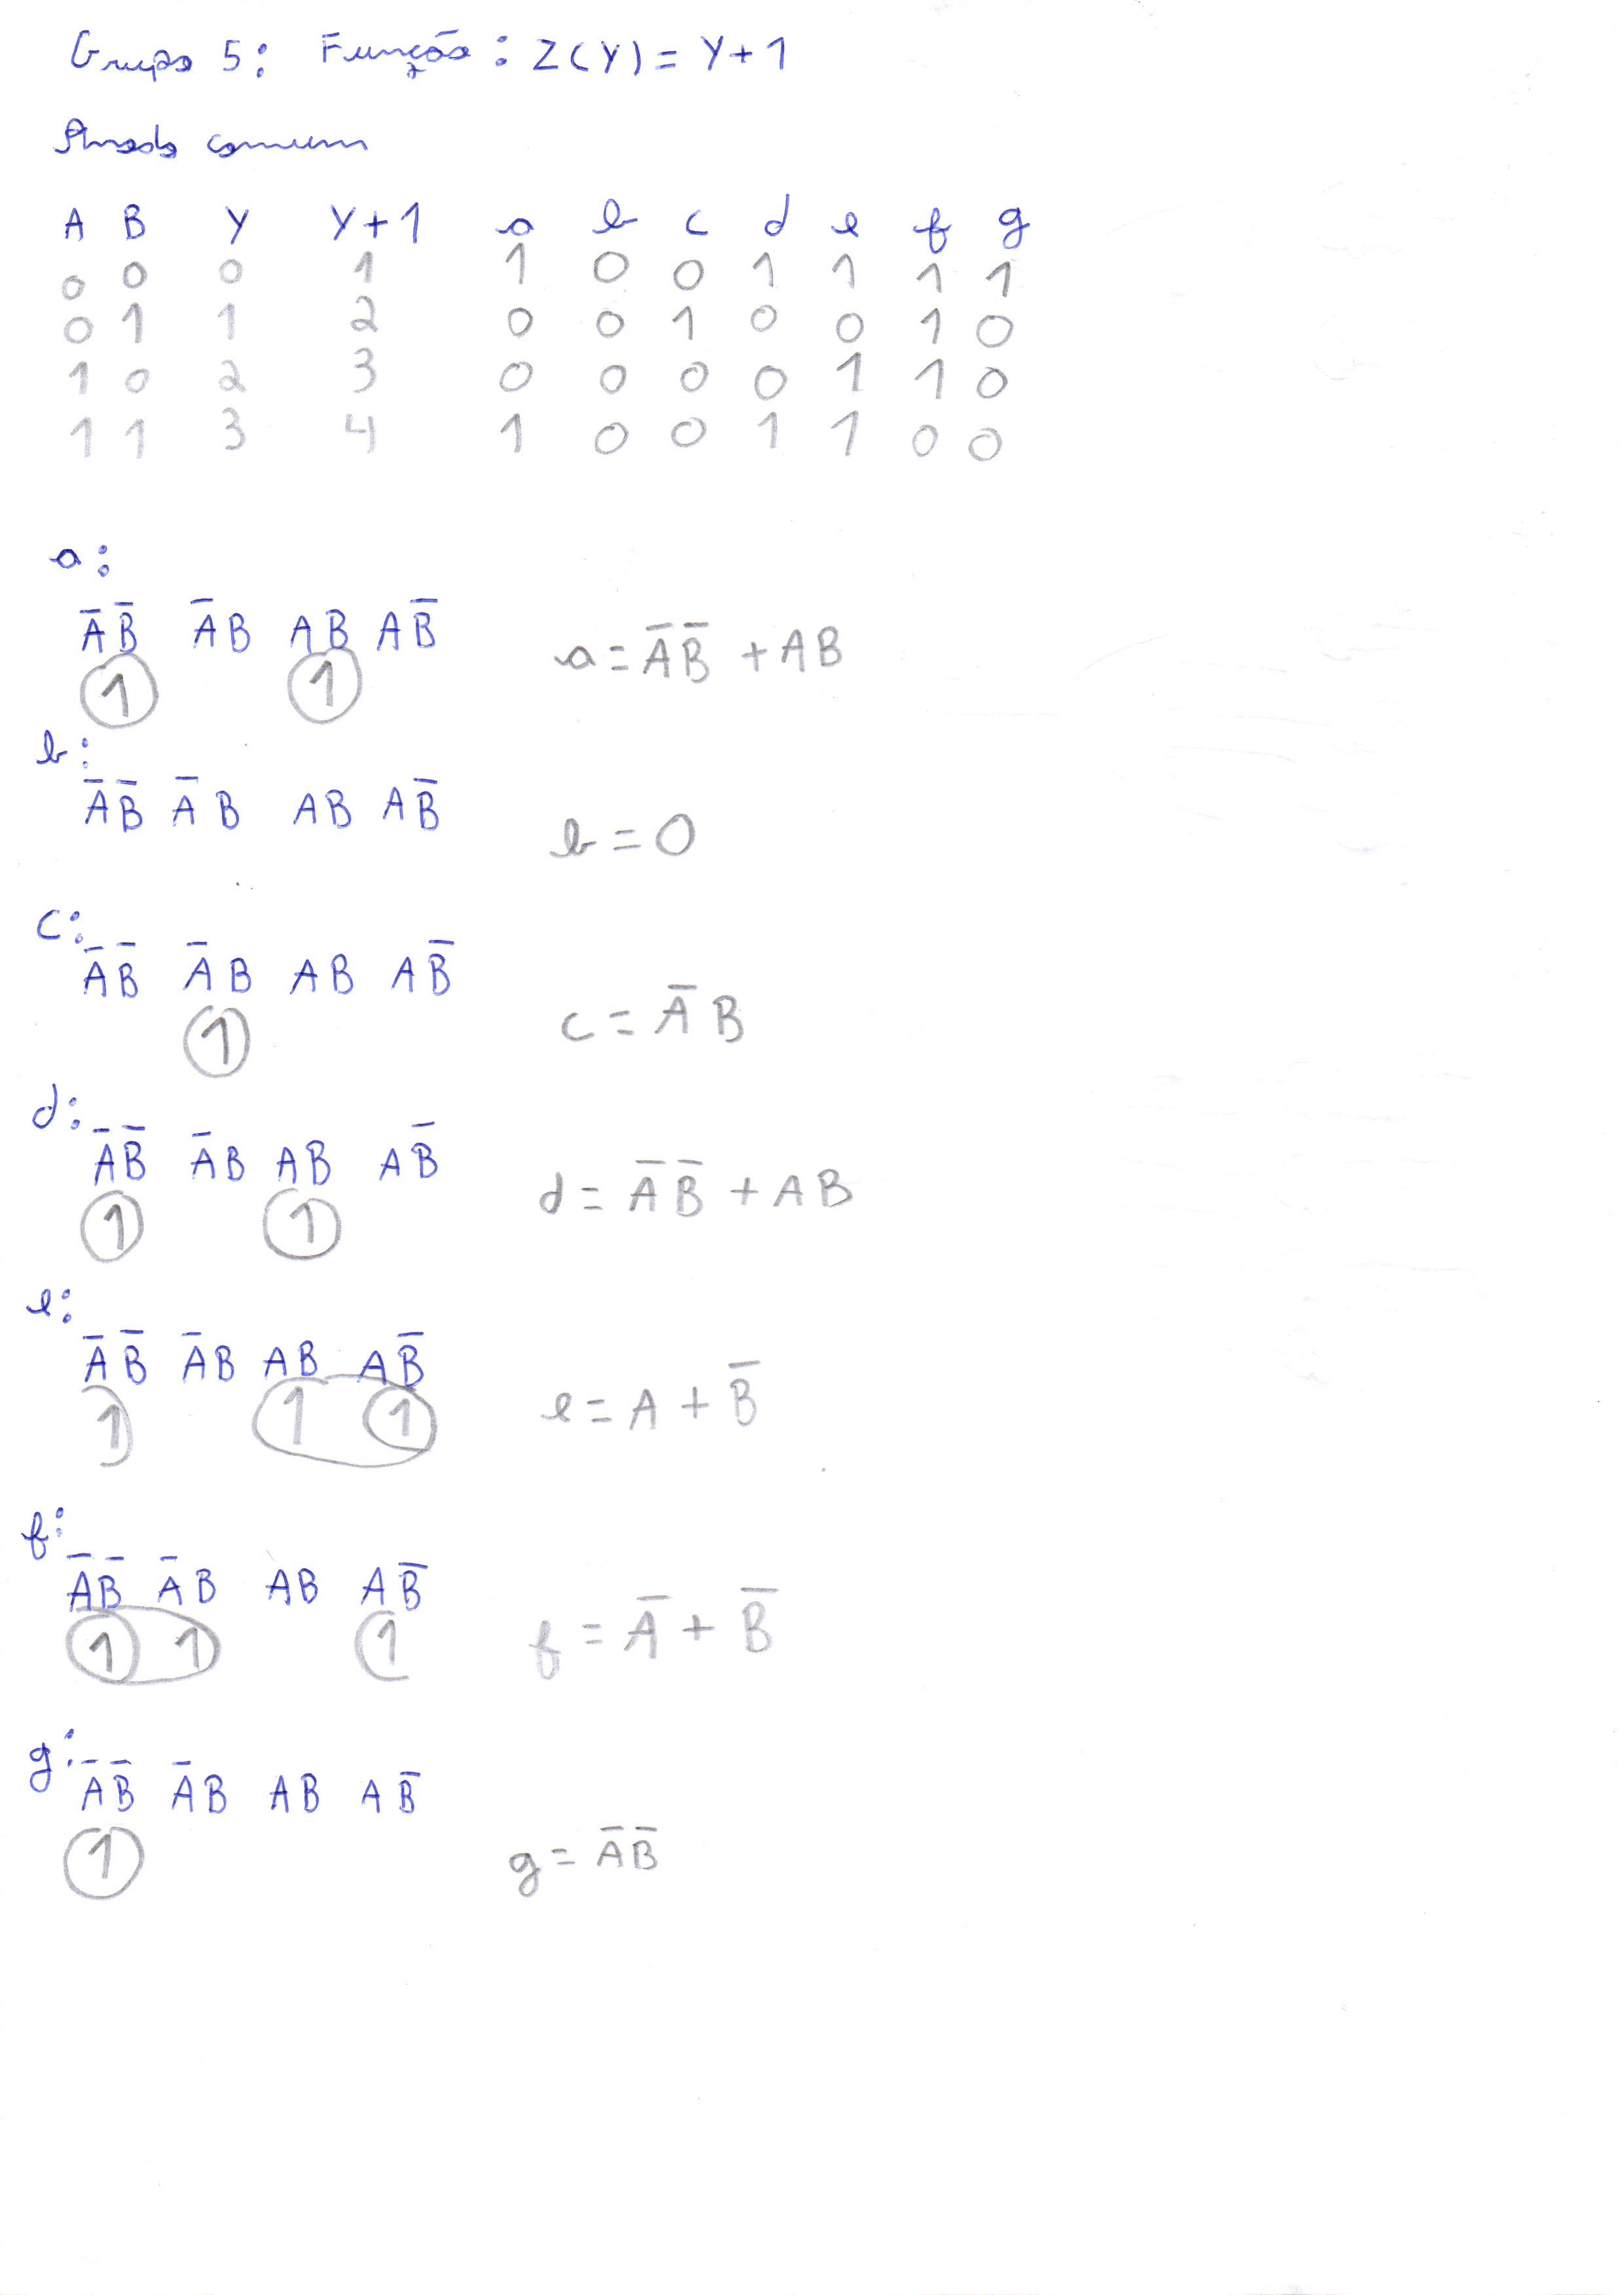 Grupo 5: Função: Z(Y) = Y + 1
Anodo comum
A B Y Y+1 a b c d e f g
0 0 0 1 1 0 0 1 1 1 1
0 1 1 2 0 0 1 0 0 1 0
1 0 2 3 0 0 0 0 1 1 0
1 1 3 4 1 0 0 1 1 0 0
a:
A̅ B̅ A̅ B A B A B̅
1 1
a = A̅ B̅ + A B
b:
A̅ B̅ A̅ B A B A B̅
b = 0
c:
A̅ B̅ A̅ B A B A B̅
1
c = A̅ B
d:
A̅ B̅ A̅ B A B A B̅
1 1
d = A̅ B̅ + A B
e:
A̅ B̅ A̅ B A B A B̅
1 1 1
e = A + B̅
f:
A̅ B̅ A̅ B A B A B̅
1 1 1
f = A̅ + B̅
g:
A̅ B̅ A̅ B A B A B̅
1
g = A̅ B̅